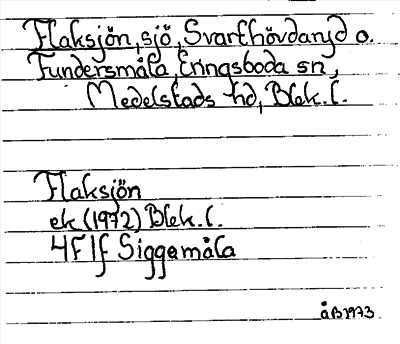 Flaksjön, sjö, Svarthövdaryd o.
Fundersmåla, Eringsboda sn,
Medelstads hd, Blek. l.
Flaksjön
ek (1972) Blek. l.
4F 1f Siggamåla
åB 1973